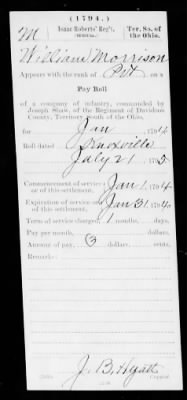 (1794.)
M Isaac Roberts' Reg't, Ter. So. of the Ohio.
William Morrison
Appears with the rank of Pvt on a
Pay Roll
of a company of infantry, commanded by
Joseph Shaw, of the Regiment of Davidson
County, Territory South of the Ohio,
for Jan 1794
Roll dated Knoxville
July 21 1795
Commencement of service or of this settlement, Jan 1, 1794
Expiration of service or of this settlement, Jan 31, 1794
Term of service charged, 1 months, days.
Pay per month, dollars, cents.
Amount of pay, 3 dollars, cents.
Remarks:
J. B. Hyatt
Copyist.